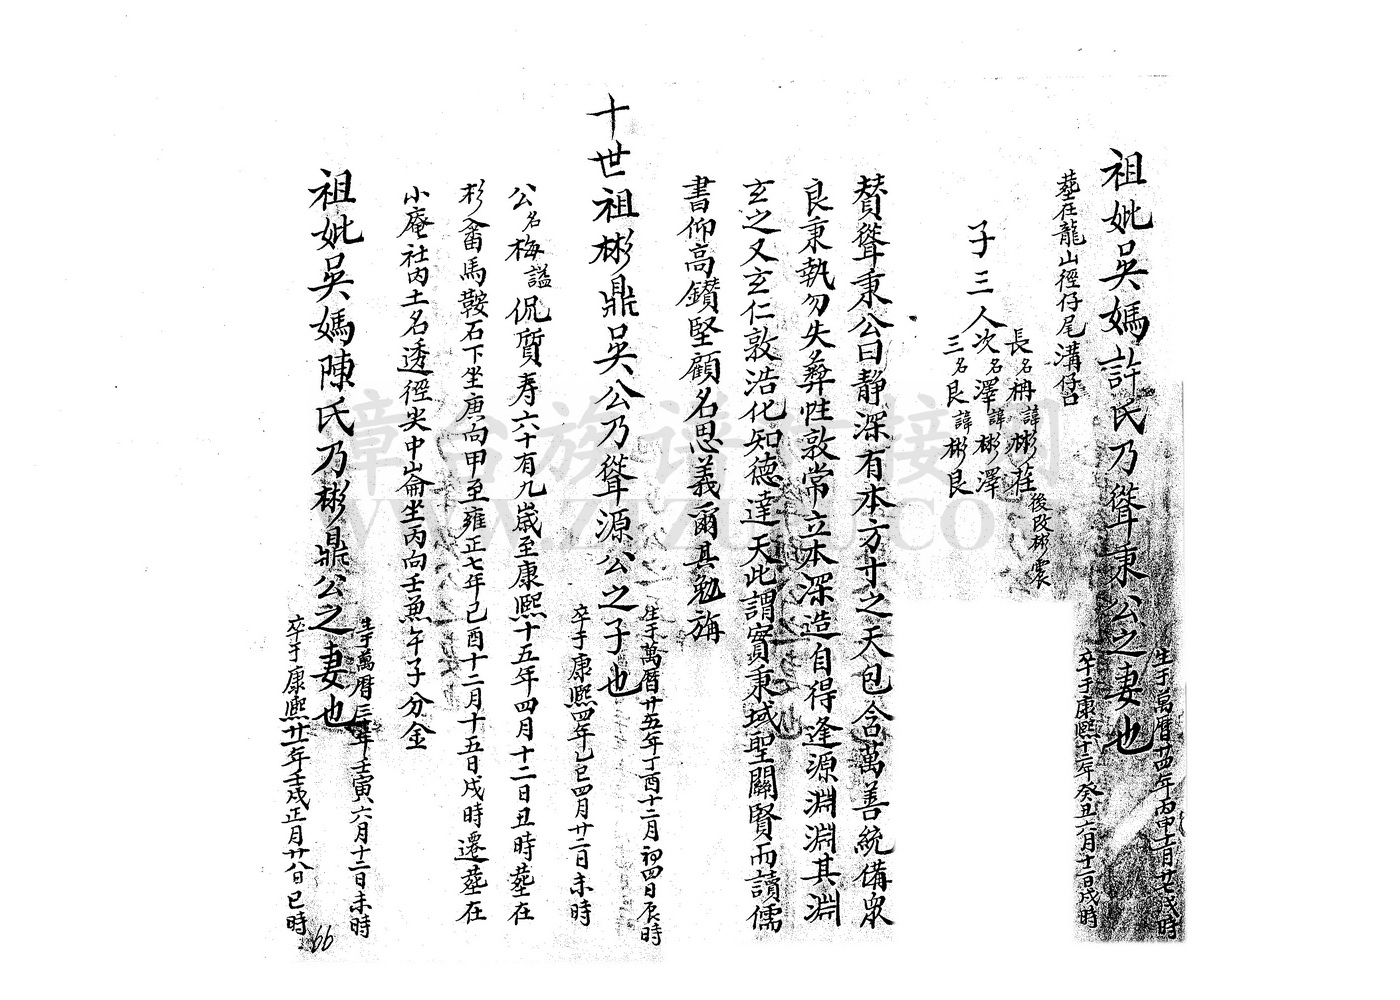 祖妣吳媽許氏乃聳秉公之妻也
生于萬曆廿四年丙申十一月廿七戌時
卒于康熙十二年癸丑六月十一日戌時
塟在龍山徑仔尾溝仔
子三人
長名柟諱彬莊後改彬震
次名澤諱彬澤
三名良諱彬良
賛聳秉公曰靜深有本方寸之天包含萬善統備衆
良秉執勿失彝性敦常立本深造自得逢源淵淵其淵
玄之又玄仁敦浩化知德達天此謂實秉域聖關賢而讀儒
書仰高鑚堅顧名思義爾其勉旃
十世祖彬鼎吳公乃聳源公之子也
生于萬曆廿五年丁酉十二月初四日辰時
卒于康熙四年乙巳四月廿二日未時
公名梅謚侃質寿六十有九歲至康熙十五年四月十二日丑時塟在
杉畬馬鞍石下坐庚向甲至雍正七年己酉十二月十五日戌時遷塟在
小庵社內土名透徑尖中崙坐丙向壬兼午子分金
祖妣吳媽陳氏乃彬鼎公之妻也
生于萬曆三年壬寅六月十二日未時
卒于康熙廿一年壬戌正月廿八日巳時
66
章台族谱对接网
www.zizupu.com